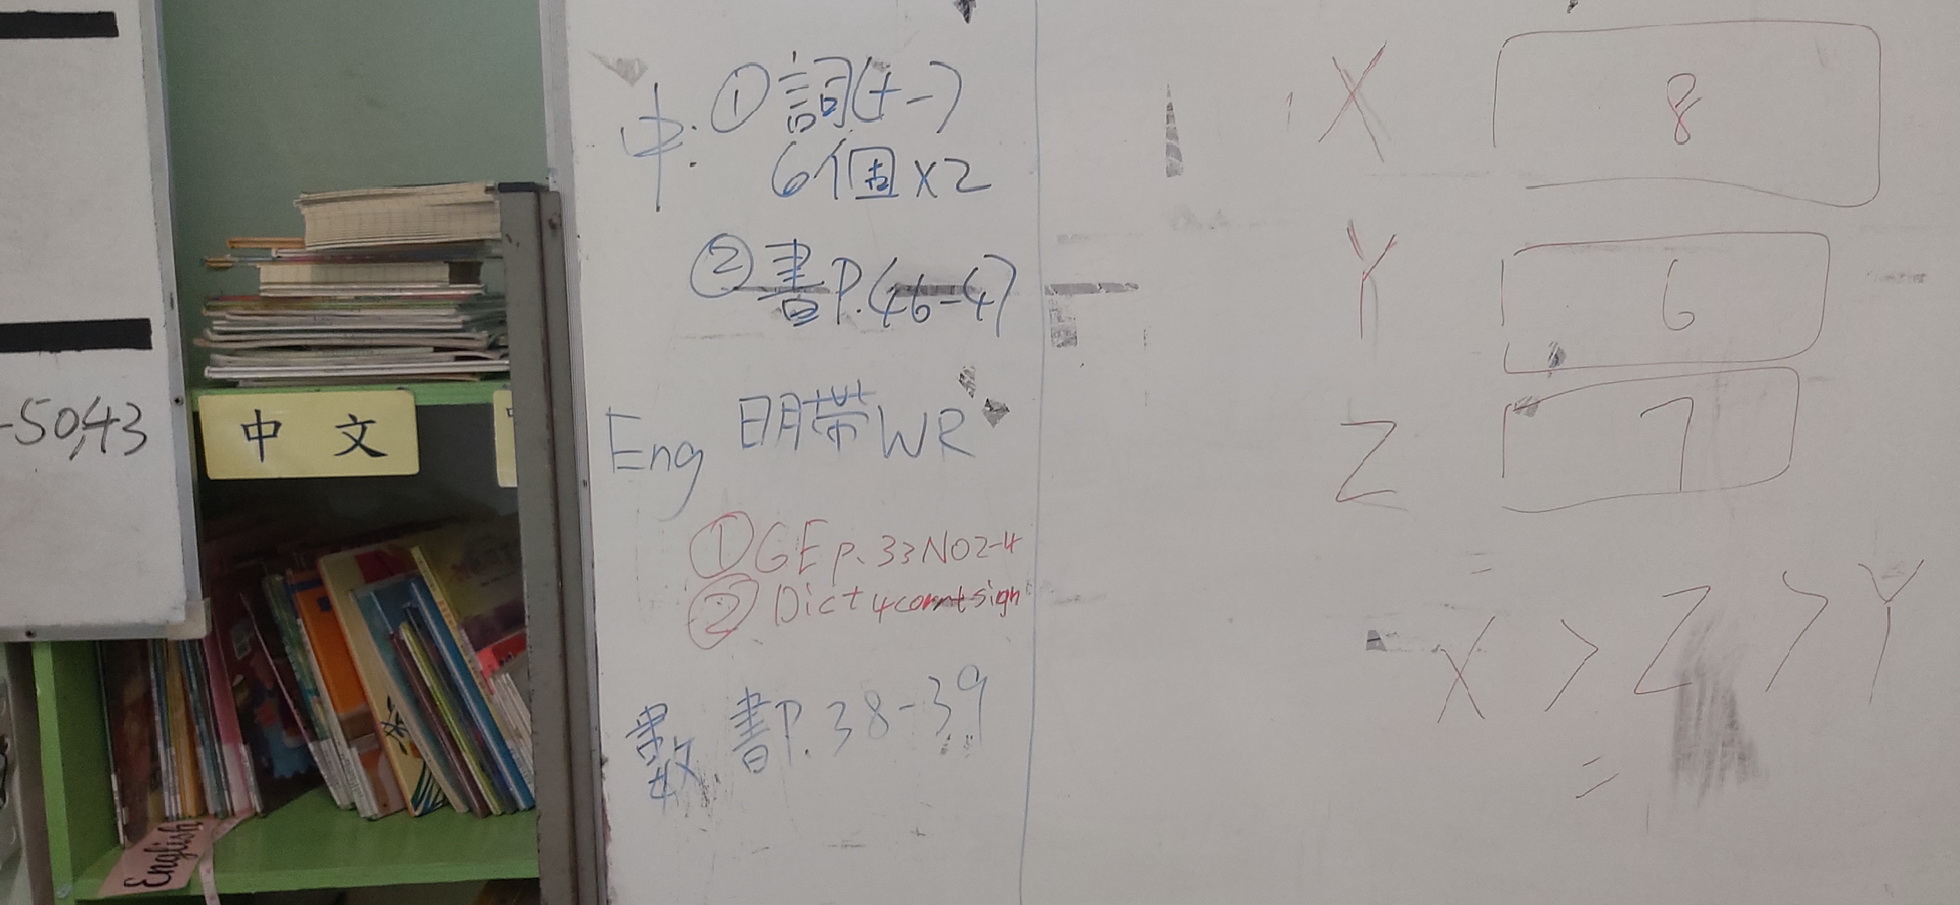 -50,43
中 文
English
中: ① 詞(十一)
6個x2
② 書P.(46-47)
Eng 明帶WR
① GE p.33 NO2-4
② Dict 4 corr+sign
數 書P.38-39
X 8
Y 6
Z 7
X > Z > Y
=